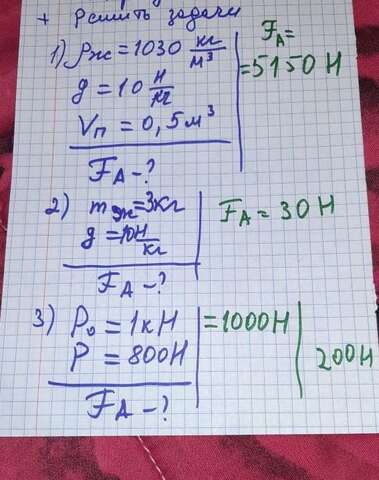 + Решить задачи
1) ρж = 1030 кг/м³
g = 10 Н/кг
Vп = 0,5 м³
FА - ?
FА =
= 5150 Н
2) mж = 3кг
g = 10Н/кг
FА - ?
FА = 30 Н
3) P₀ = 1кН = 1000Н
P = 800Н
FА - ?
200Н